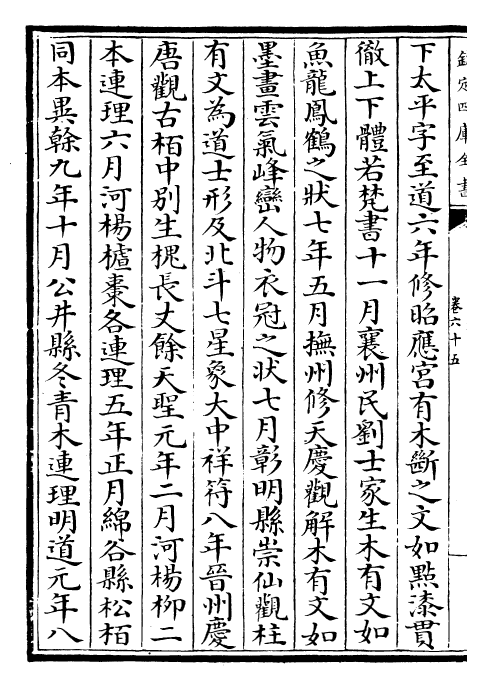 欽定四庫全書
卷六十五
下太平字至道六年修昭應宮有木斷之文如點漆貫
徹上下體若梵書十一月襄州民劉士家生木有文如
魚龍鳳鶴之狀七年五月撫州修天慶觀解木有文如
墨畫雲氣峰巒人物衣冠之狀七月彰明縣崇仙觀柱
有文為道士形及北斗七星象大中祥符八年晉州慶
唐觀古栢中別生槐長丈餘天聖元年二月河楊柳二
本連理六月河楊樝棗各連理五年正月綿谷縣松栢
同本異榦九年十月公井縣冬青木連理明道元年八